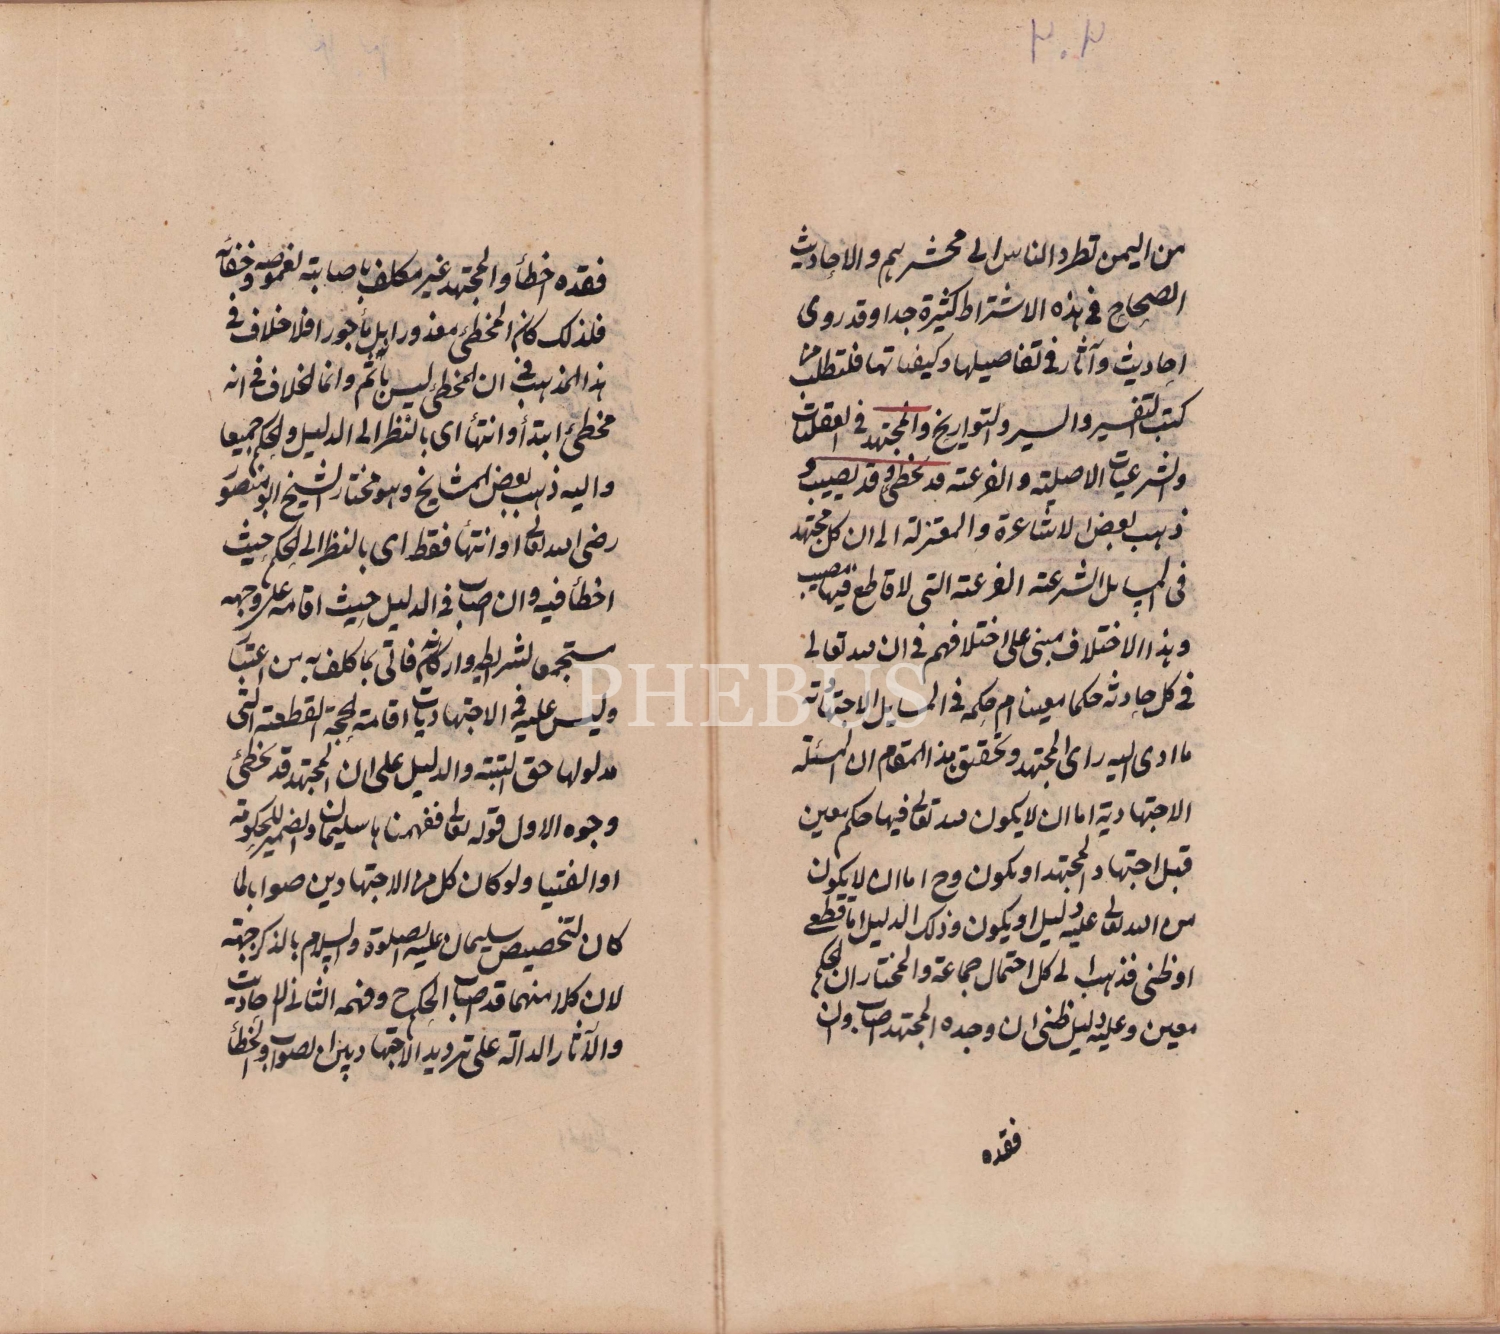 من اليمن تطرد الناس الى محشرهم والاحاديث
الصحاح فى هذه الاشتراط كثيرة جدا وقد روى
احاديث وآثار فى تفاصيلها وكيفياتها فلتطلب من
كتب التفسير والسير والتواريخ والمجتهد فى العقليات
والشرعيات الاصلية والفرعية قد يخطئ وقد يصيب و
ذهب بعض الاشاعرة والمعتزلة الى ان كل مجتهد
فى المسايل الشرعية الفرعية التى لا قاطع فيها مصيب
وهذا الاختلاف مبنى على اختلافهم فى ان لله تعالى
فى كل حادثة حكما معينا ام حكمه فى المسايل الاجتهادية
ما ادى اليه راى المجتهد وتحقيق هذا المقام ان المسئلة
الاجتهادية اما ان لا يكون لله تعالى فيها حكم معين
قبل اجتهاد المجتهد او يكون وح اما ان لا يكون
من الله تعالى عليه دليل او يكون وذلك الدليل اما قطعى
او ظنى فذهب الى كل احتمال جماعة والمختار ان الحكم
معين وعليه دليل ظنى ان وجده المجتهد اصاب وان
فقده
فقده اخطأ والمجتهد غير مكلف باصابته لغموضه وخفائه
فلذلك كان المخطئ معذورا بل مأجورا فلا خلاف فى
هذا المذهب فى ان المخطئ ليس بآثم وانما الخلاف فى انه
مخطئ ابتدأ وانتهأ اى بالنظر الى الدليل والحكم جميعا
واليه ذهب بعض المشايخ وهو مختار الشيخ ابو منصور
رضى الله تعالى او انتهأ فقط اى بالنظر الى الحكم حيث
اخطأ فيه وان اصاب فى الدليل حيث اقامه على وجهه
مستجمعا لشرايطه واركانه فاتى بما كلف به من اعتبار
وليس عليه فى الاجتهاديات اقامة الحجة القطعية التى
مدلولها حق البتة والدليل على ان المجتهد قد يخطئ
وجوه الاول قوله تعالى ففهمناها سليمان والضمير للحكومة
او الفتيا ولو كان كل من الاجتهادين صوابا لما
كان لتخصيص سليمان عليه الصلوة والسلام بالذكر جهة
لان كلا منهما قد اصاب الحكم ح وفهمه الثانى الاحاديث
والآثار الدالة على ترديد الاجتهاد بين الصواب والخطأ
PHEBUS